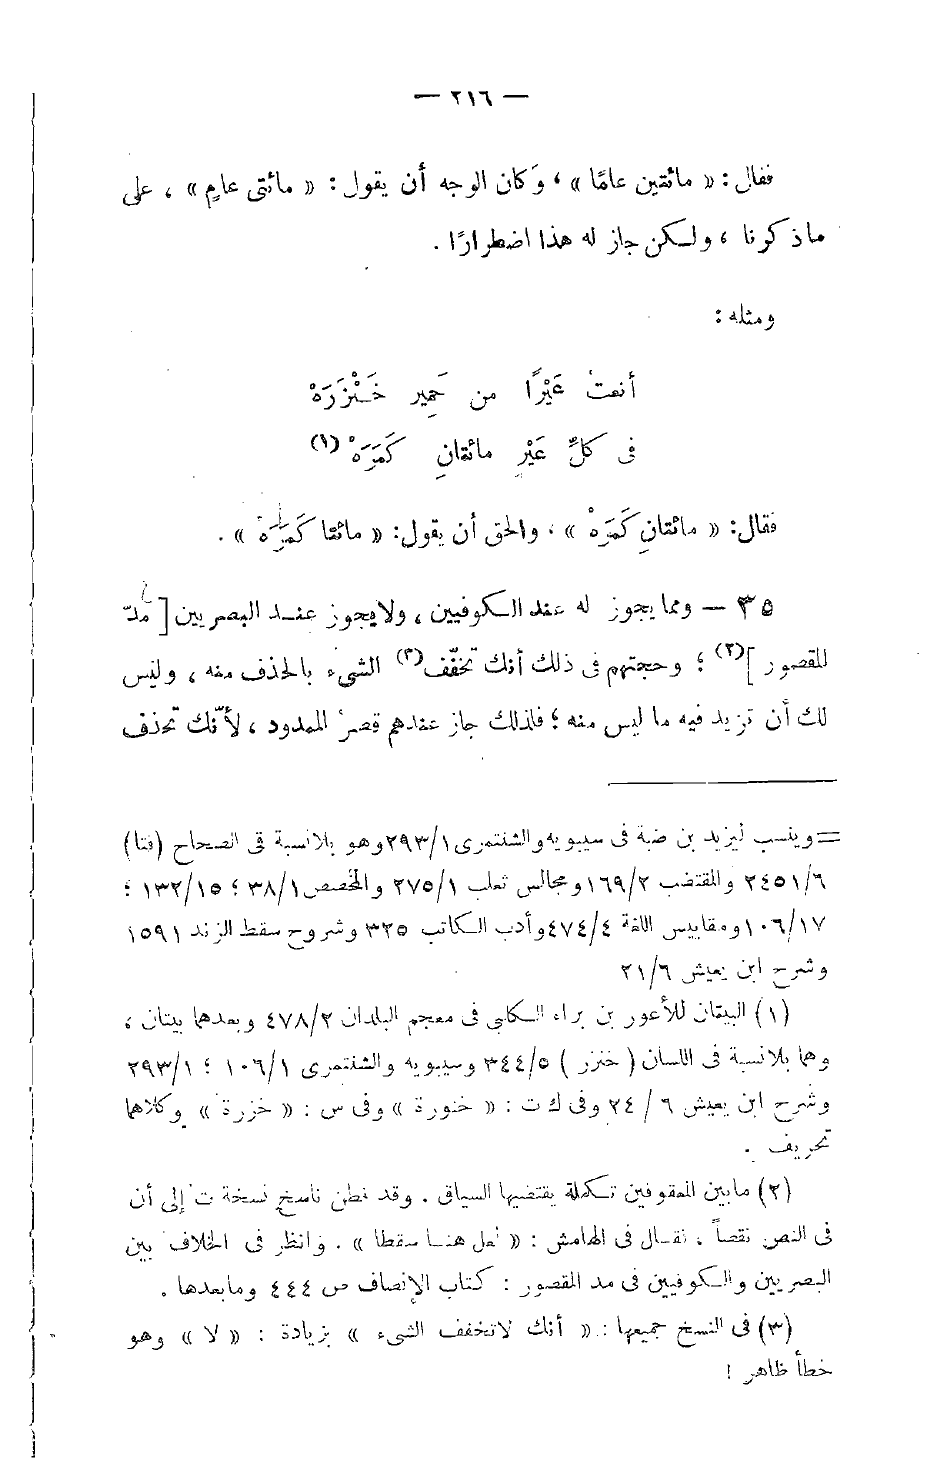 — ٢١٦ —
فقال : « مائتين عامًا » ، وَكان الوجه أن يقول : « مائتى عامٍ » ، على
ماذكرنا ، ولكن جاز له هذا اضطرارًا .
ومثله :
أنعتُ عَيْرًا من حَمِير خَنْزَرَهْ
فى كلِّ عَيْرٍ مائتانِ كَمَرَهْ (١)
فقال : « مائتانِ كَمَرَهْ » . والحق أن يقول : « مائتا كَمَرَةٍ » .
٣٥ — ومما يجوز له عند الكوفيين ، ولايجوز عند البصريين [ مدّ
للقصور ](٢) ؛ وحجتهم فى ذلك أنك تخفّف(٣) الشىء بالحذف منه ، وليس
لك أن تزيد فيه ما ليس منه ؛ فلذلك جاز عندهم قصرُ الممدود ، لأنّك تحذف
= وينسب ليزيد بن ضبة فى سيبويه والشنتمرى ٢٩٣/١ وهو بلانسبة فى الصحاح (فتا)
٢٤٥١/٦ والمقتضب ١٦٩/٢ ومجالس ثعلب ٢٧٥/١ والمخصص ٣٨/١ ؛ ١٣٢/١٥ ؛
١٠٦/١٧ ومقاييس اللغة ٤٧٤/٤ وأدب الكاتب ٣٢٥ وشروح سقط الزند ١٥٩١
وشرح ابن يعيش ٢١/٦
(١) البيتان للأعور بن براء الكلبى فى معجم البلدان ٤٧٨/٢ وبعدهما بيتان ،
وهما بلانسبة فى اللسان ( خنزر ) ٣٤٤/٥ وسيبويه والشنتمرى ١٠٦/١ ؛ ٢٩٣/١
وشرح ابن يعيش ٦ / ٢٤ وفى ك ت : « خنورة » وفى س : « خزرة » وكلاهما
تحريف .
(٢) مابين المعقوفين تكملة يقتضيها السياق . وقد فطن ناسخ نسخة ت إلى أن
فى النص نقصاً ، فقال فى الهامش : « لعل هنا سقطا » . وانظر فى الخلاف بين
البصريين والكوفيين فى مد المقصور : كتاب الإنصاف ص ٤٤٤ ومابعدها .
(٣) فى النسخ جميعها : « أنك لاتخفف الشىء » بزيادة : « لا » وهو
خطأ ظاهر !